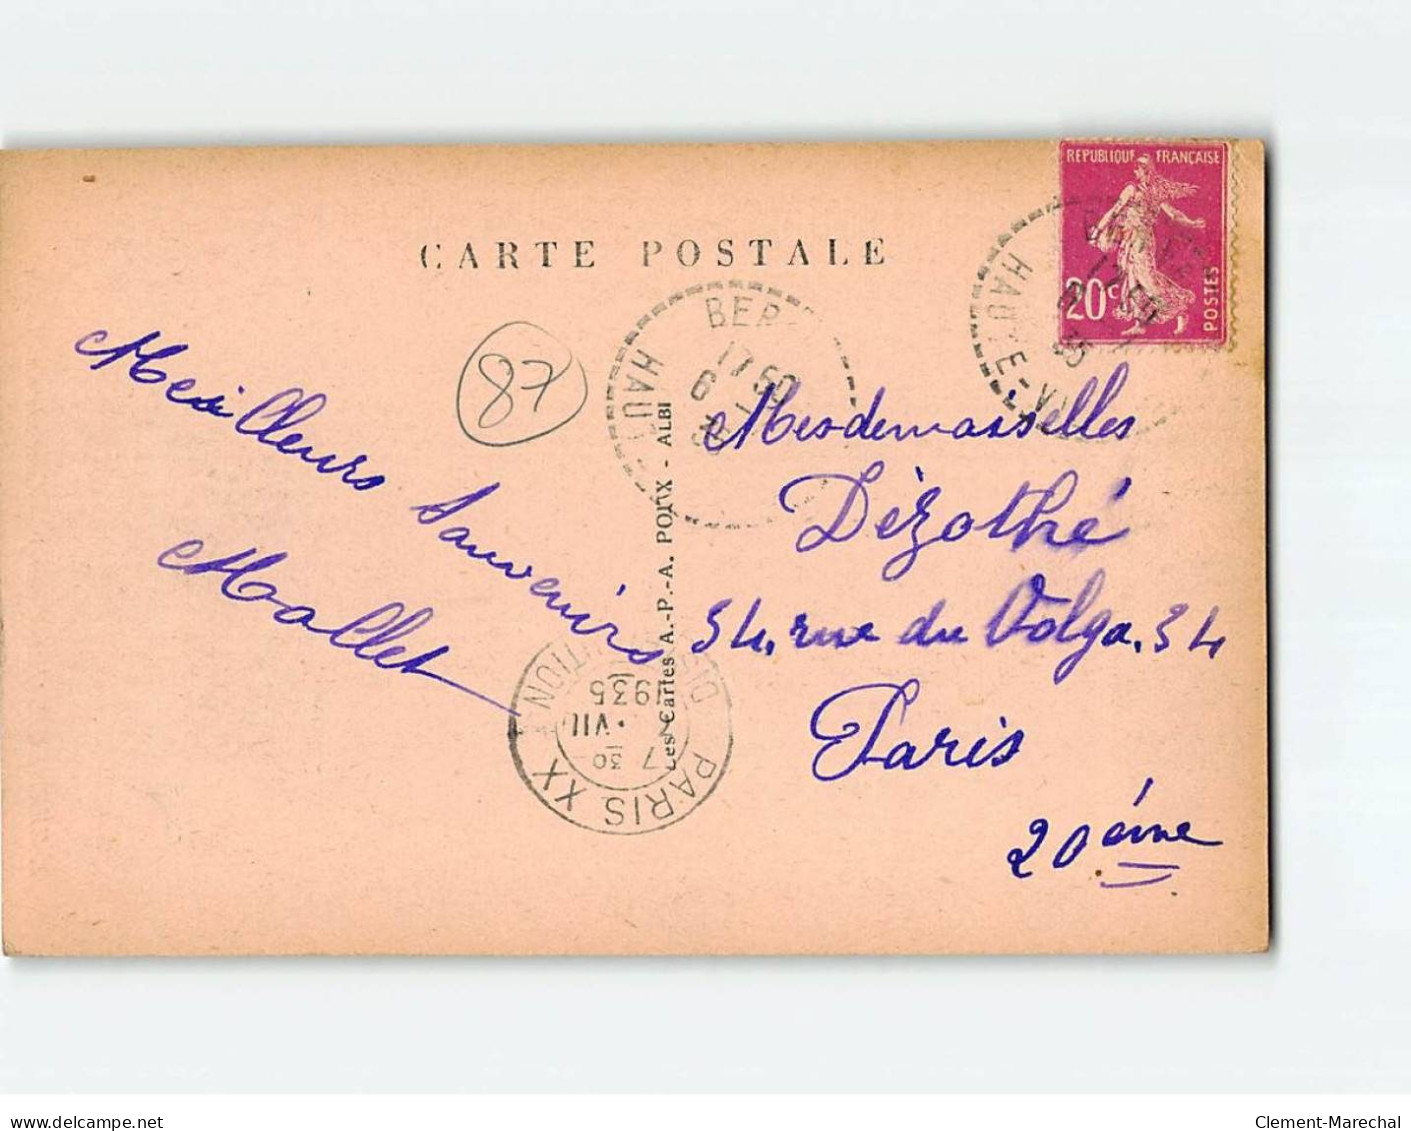 CARTE POSTALE
REPUBLIQUE FRANÇAISE
20c
POSTES
HAUTE-
BER
17 50
6
HAUT
87
Meilleurs Souvenirs
Mallet
Les Cartes A.-P.-A. POUX - ALBI
Mesdemoiselles
Dézothé
34, rue du Volga. 34
Paris
20 ème
PARIS XX
7 30
VII
1935
Clement-Marechal